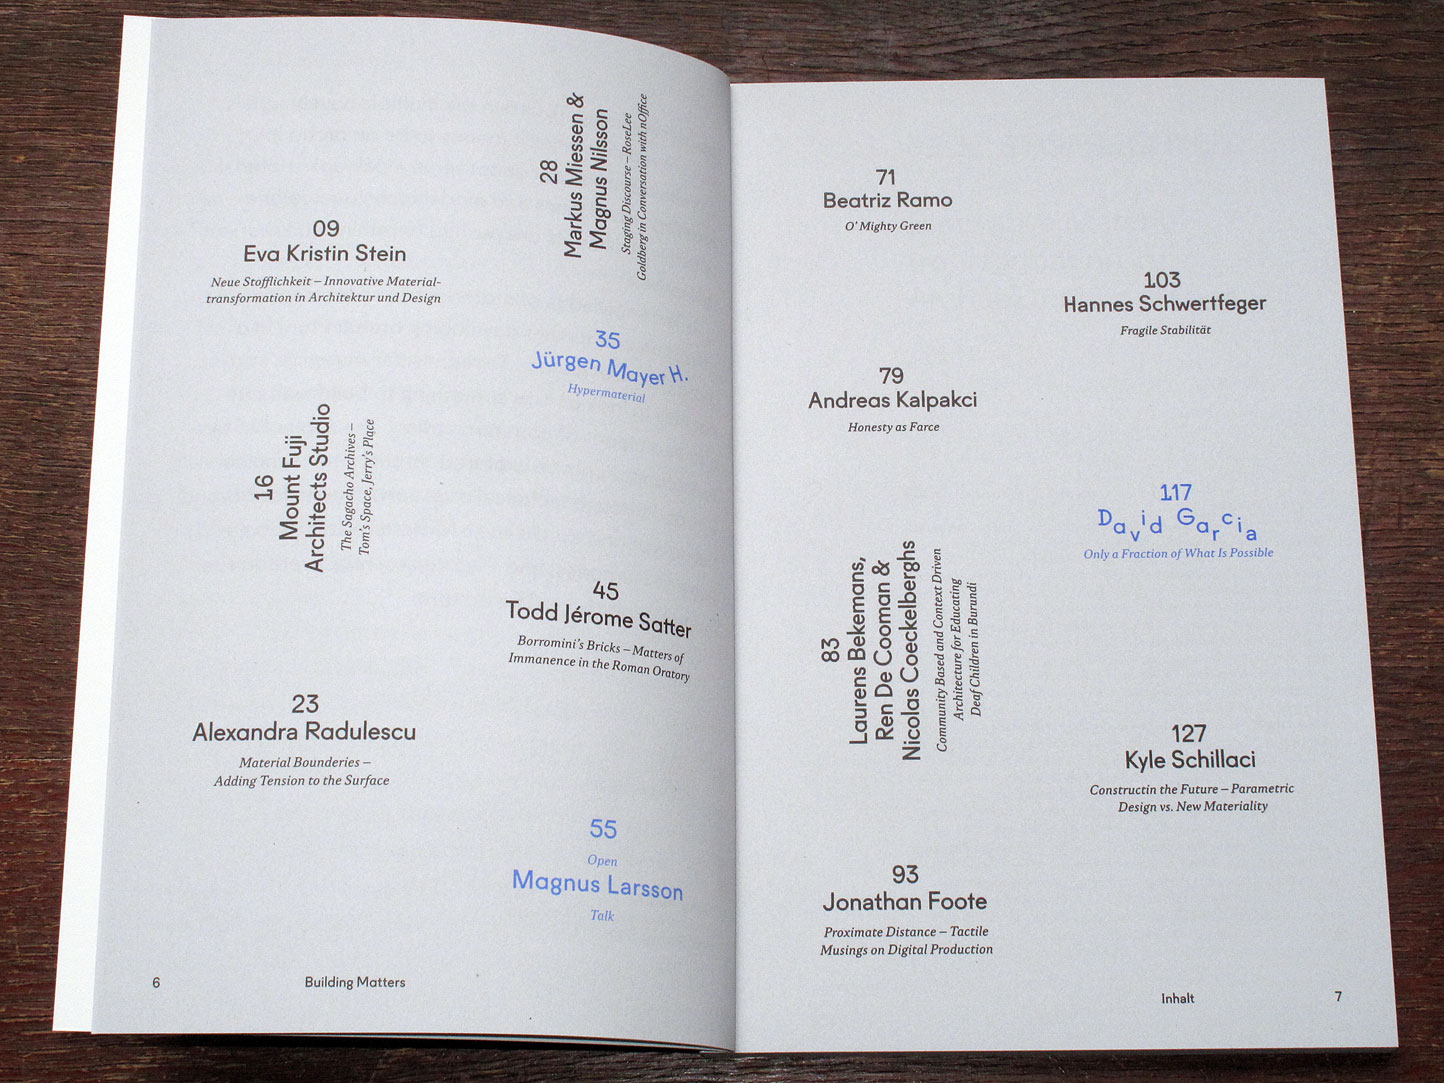 09
Eva Kristin Stein
Neue Stofflichkeit – Innovative Material-
transformation in Architektur und Design
16
Mount Fuji
Architects Studio
The Sagacho Archives –
Tom's Space, Jerry's Place
23
Alexandra Radulescu
Material Bounderies –
Adding Tension to the Surface
28
Markus Miessen &
Magnus Nilsson
Staging Discourse – RoseLee
Goldberg in Conversation with nOffice
35
Jürgen Mayer H.
Hypermaterial
45
Todd Jérome Satter
Borromini's Bricks – Matters of
Immanence in the Roman Oratory
55
Open
Magnus Larsson
Talk
6
Building Matters
71
Beatriz Ramo
O' Mighty Green
79
Andreas Kalpakci
Honesty as Farce
83
Laurens Bekemans,
Ren De Cooman &
Nicolas Coeckelberghs
Community Based and Context Driven
Architecture for Educating
Deaf Children in Burundi
93
Jonathan Foote
Proximate Distance – Tactile
Musings on Digital Production
103
Hannes Schwertfeger
Fragile Stabilität
117
David Garcia
Only a Fraction of What Is Possible
127
Kyle Schillaci
Constructin the Future – Parametric
Design vs. New Materiality
Inhalt
7